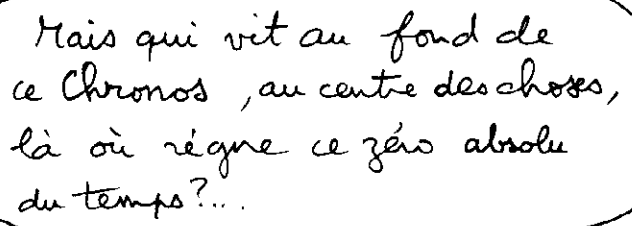 Mais qui vit au fond de
ce Chronos, au centre des choses,
là où règne ce zéro absolu
du temps?...